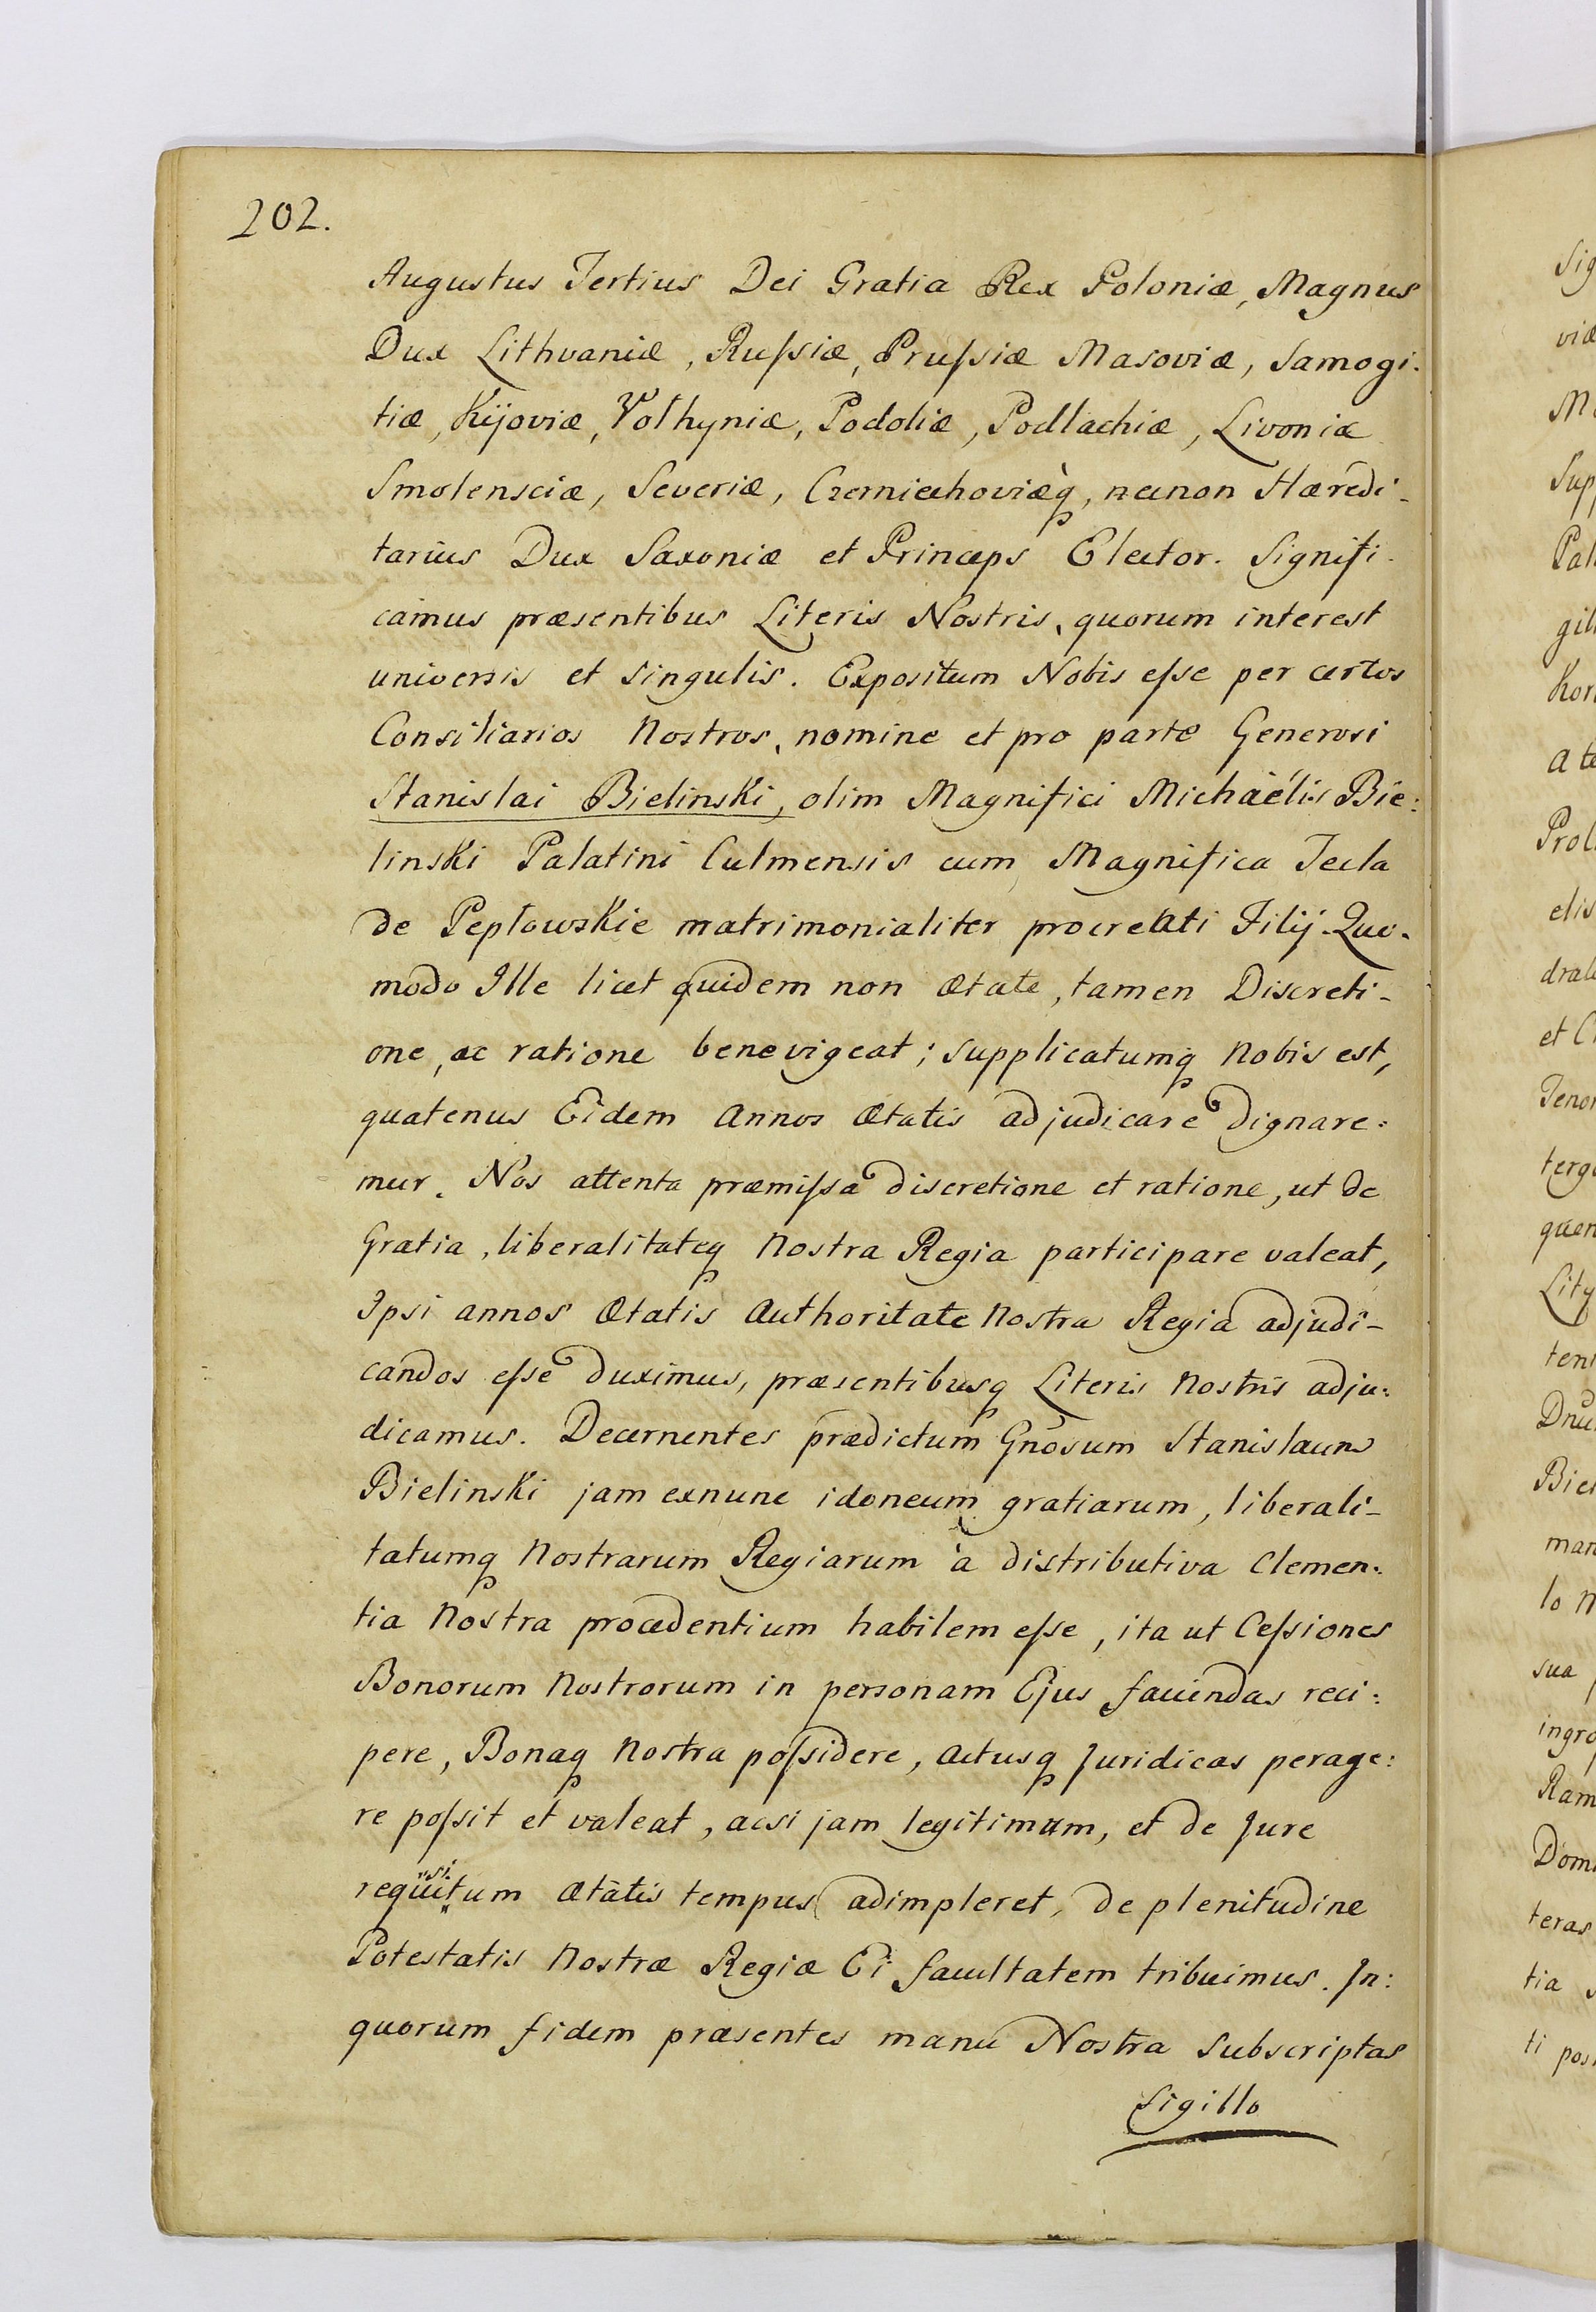 202.
Augustus Tertius Dei Gratia Rex Poloniæ, Magnus
Dux Lithvaniæ, Ruſsiæ, Pruſsiæ Masoviæ, Samogi.
tiæ, Kijoviæ, Volhyniæ, Podoliæ, Podlachiæ, Livoniæ
Smolensciæ, Severiæ, Czerniechoviæq̀, necnon Hæredi-
tarius Dux Saxoniæ et Princeps Elector. Signifi-
camus præsentibus Literis Nostris, quorum interest
universis et singulis. Expositum Nobis eſse per certos
Consiliarios Nostros, nomine et pro parte Generosi
Stanislai Bielinski, olim Magnifici Michaëlis Bie:
linski Palatini Culmensis cum Magnifica Tecla
de Peptowskie matrimonialiter procreati Filij. Quo-
modo Ille licet quidem non ætate, tamen Discreti-
one, ac ratione bene vigeat; supplicatumq Nobis est,
quatenus Eidem annos ætatis adjudicare dignare:
mur. Nos attenta præmiſsa discretione et ratione, ut de
Gratia, liberalitateq Nostra Regia participare valeat,
Ipsi annos ætatis Authoritate Nostra Regia adjudi-
candos eſse duximus, præsentibusq Literis Nostris adju:
dicamus. Decernentes prædictum Gnōsum Stanislaum
Bielinski jam exnunc idoneum gratiarum, liberali-
tatumq Nostrarum Regiarum à distributiva Clemen:
tia Nostra procedentium habilem eſse, ita ut Ceſsiones
Bonorum Nostrorum in personam Ejus faciendas reci:
pere, Bonaq Nostra poſsidere, actusq Juridicas perage:
re poſsit et valeat, acsi jam legitimum, et de Jure
si
requitum ætatis tempus adimpleret, de plenitudine
Potestatis Nostræ Regiæ Ei facultatem tribuimus. In:
quorum fidem præsentes manu Nostra subscriptas
Sigillo
Sig
viæ
Sup
Pal
gil
Kor
a te
Prol
elis
dral
et C
Tenor
terg
quen
Lity
ten
Bie
man
lo N
sua
ingr
Ram
Dom
teras
tia
ti pos